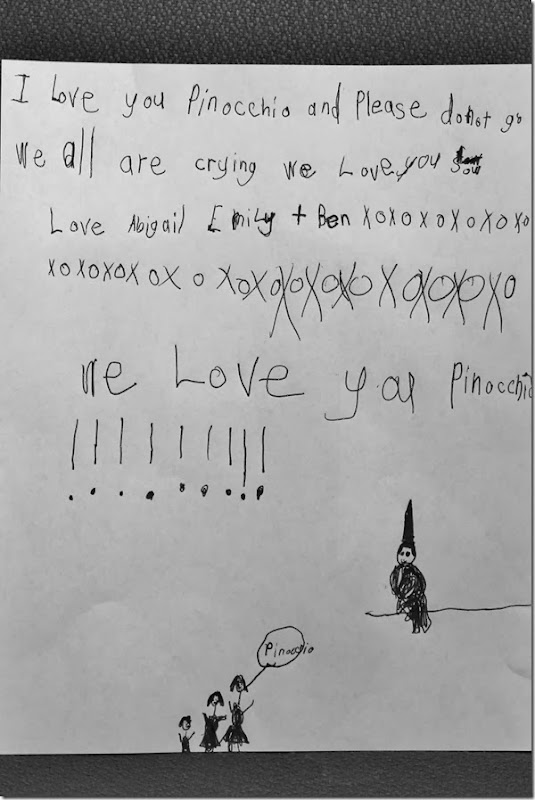 I Love you Pinocchio and Please donot go
We all are crying We Love you
Love Abigail Emily + Ben XOXOXOXOXOXO
XOXOXOXOXXOXOXOXOXOXOXOXOXO
We Love you Pinocchio
!!!!!!!!!
Pinocchio